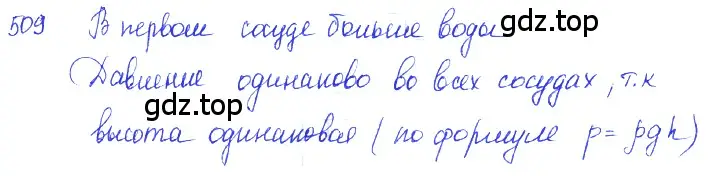 509 В первом сосуде больше воды
gdz.top
Давление одинаково во всех сосудах, т.к
gdz.top
высота одинаковая (по формуле p = ρgh)